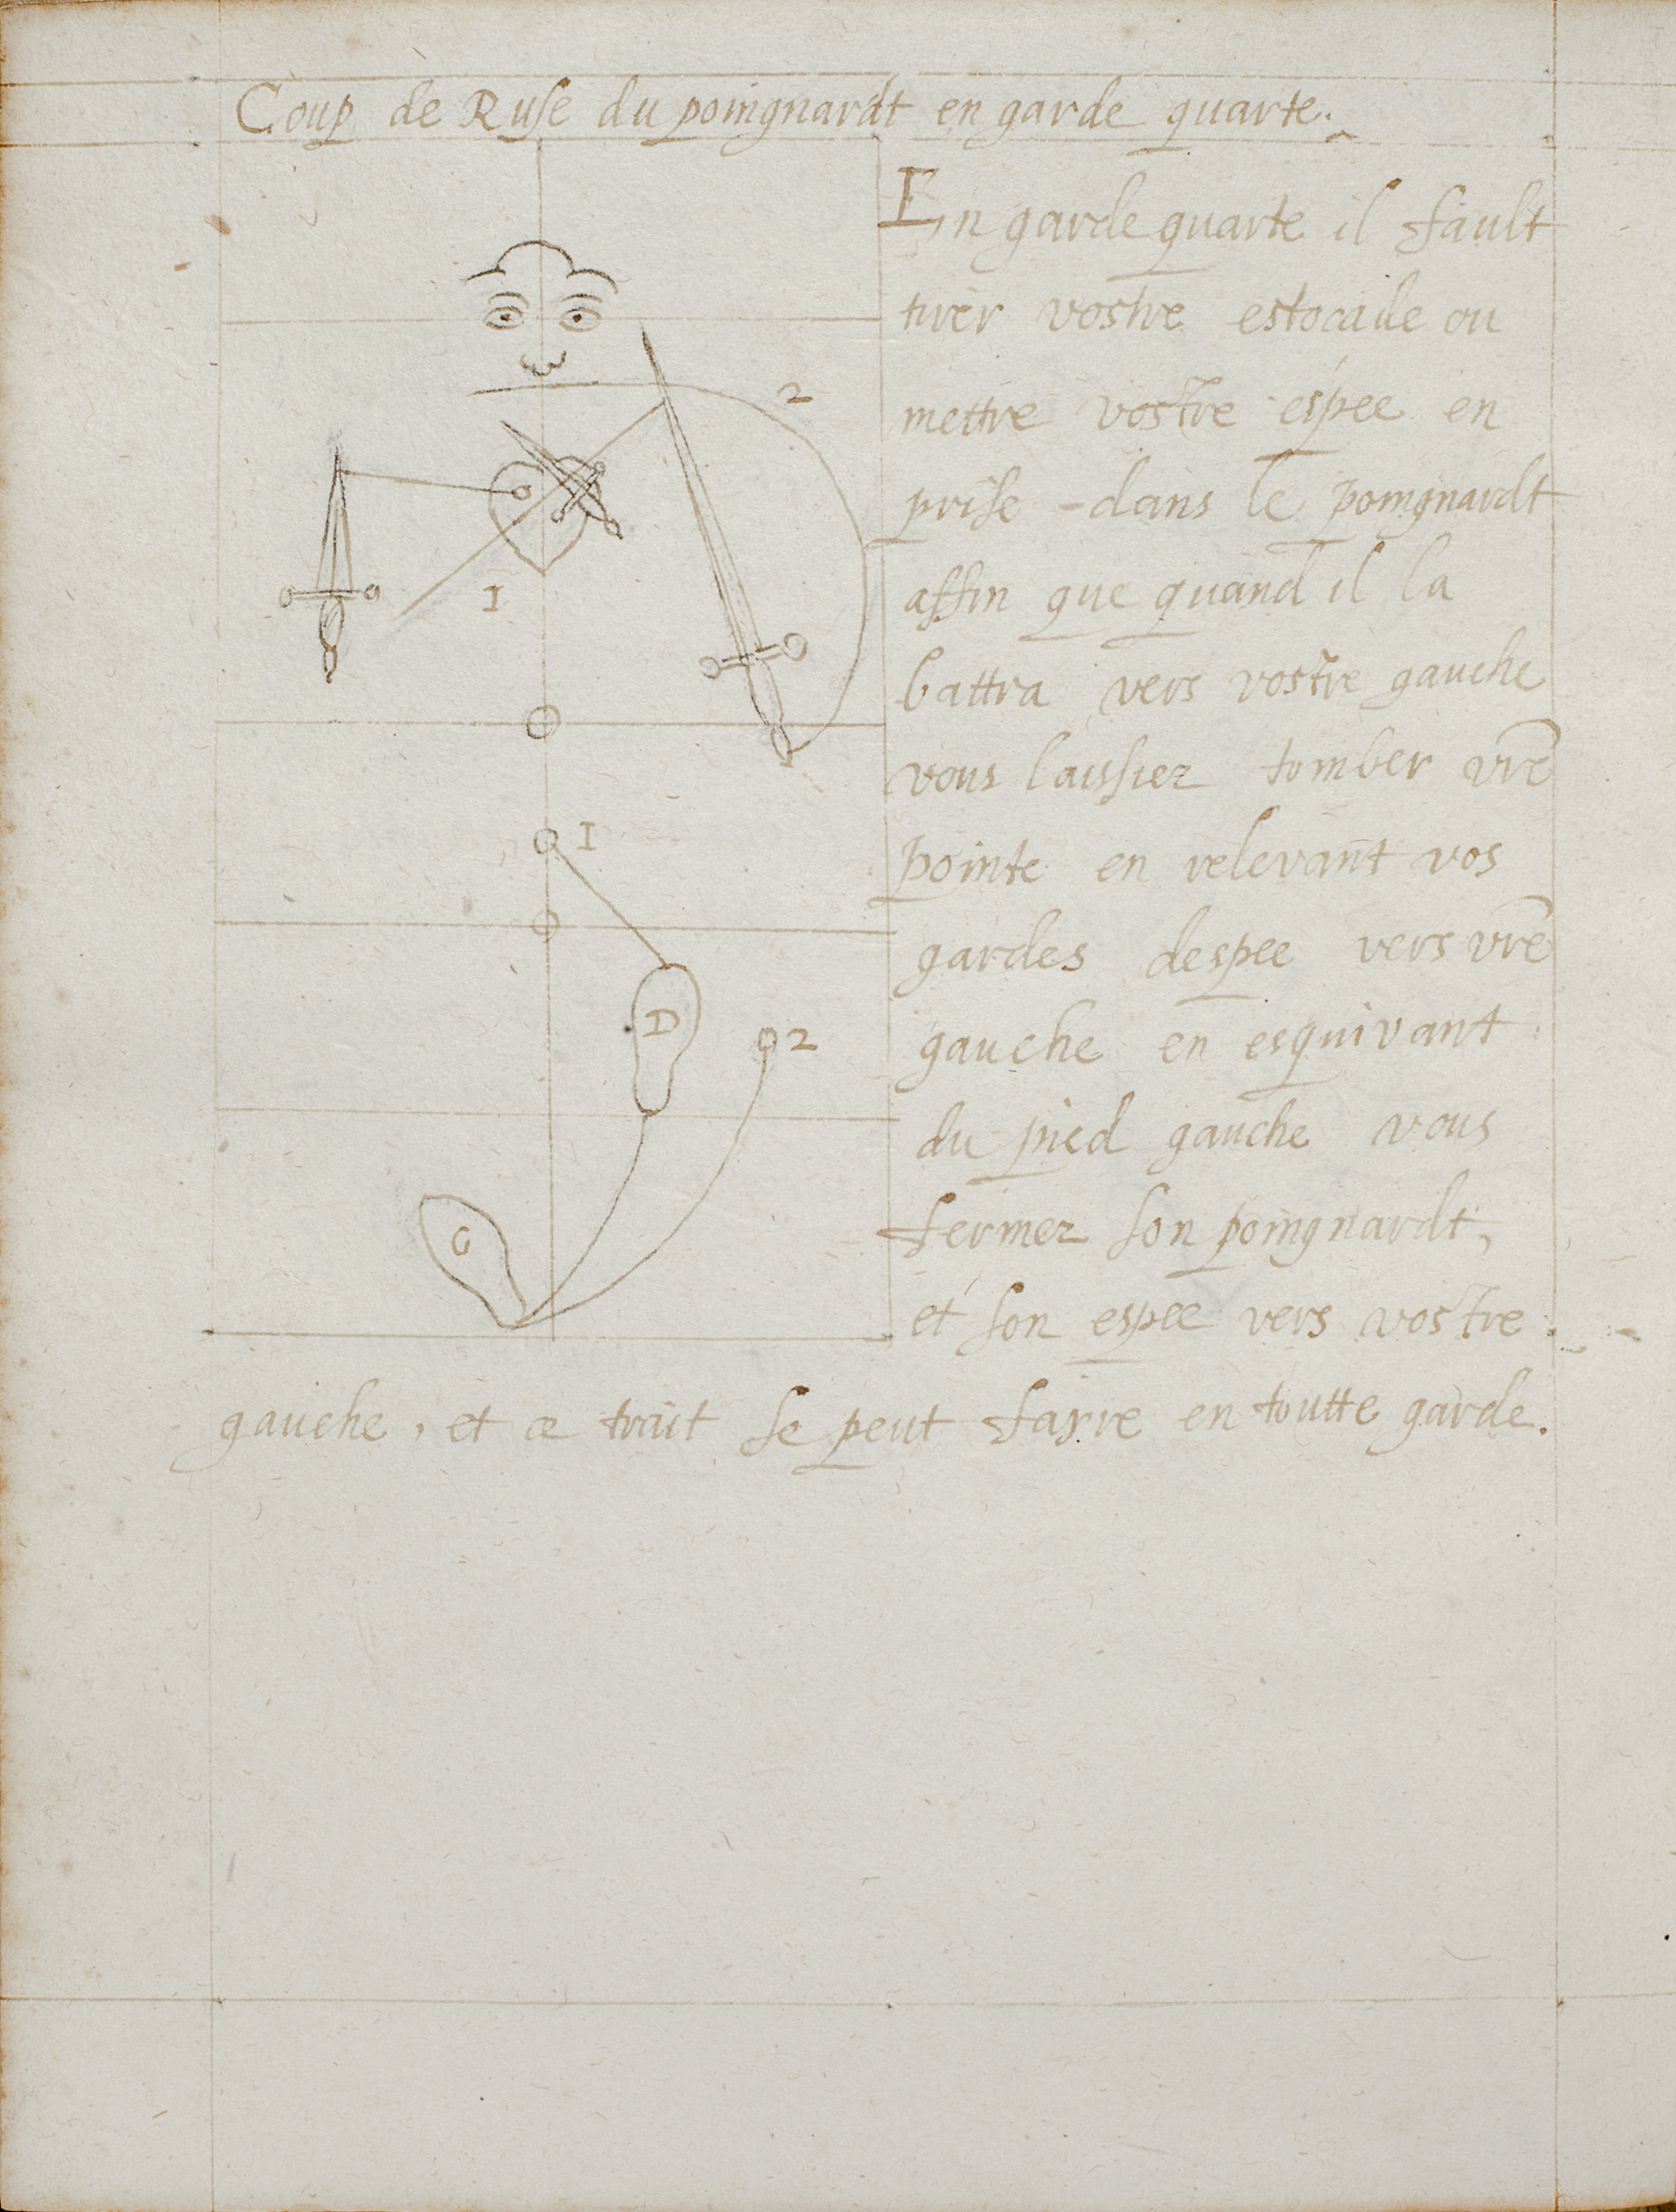 Coup de Ruse du poingnardt en garde quarte.
En garde quarte il fault
tirer vostre estocade ou
mettre vostre espee en
prise dans le poingnardt
affin que quand il la
battra vers vostre gauche
vous laissiez tomber vre
pointe en relevant vos
gardes despee vers vre
gauche en esquivant
du pied gauche vous
fermez son poingnardt,
et son espee vers vostre
gauche, et ce trait se peut fayre en toutte garde.
2
1
1
D
2
G